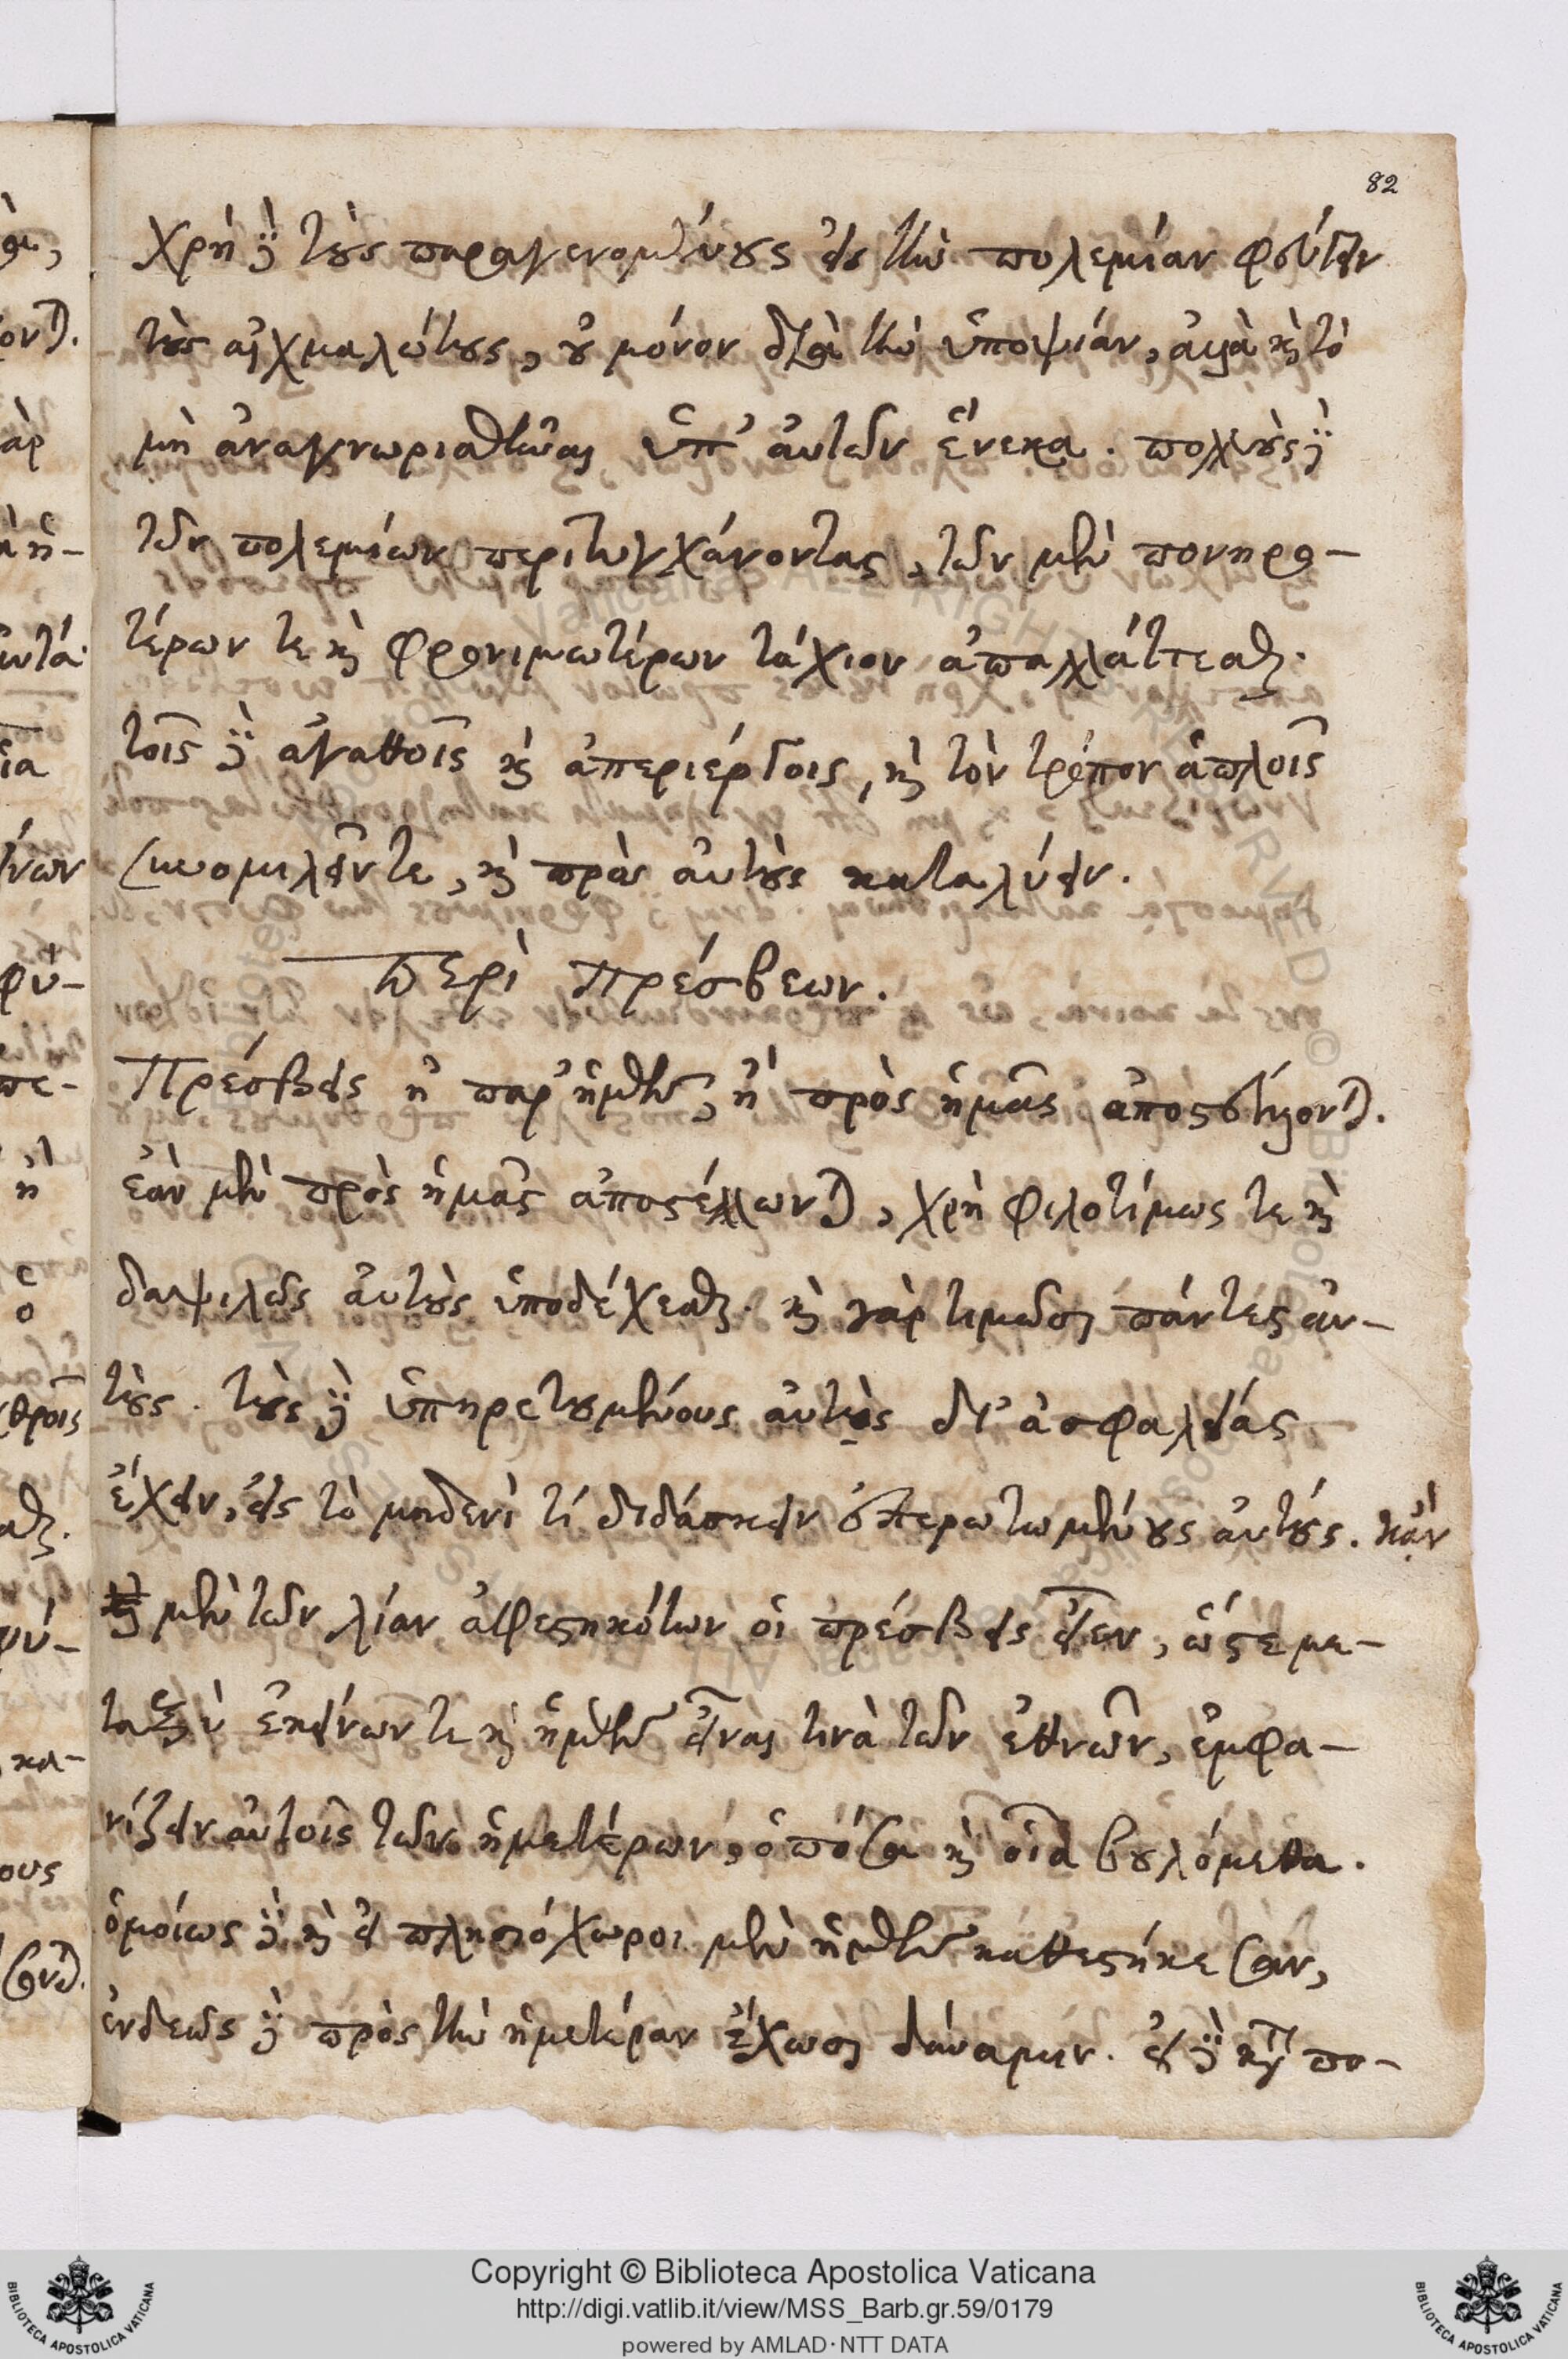 82
χρὴ δὲ τοὺς παραγενομένους εἰς τὴν πολεμίαν φεύγειν
τοὺς αἰχμαλώτους, οὐ μόνον διὰ τὴν ὑποψίαν, ἀλλὰ καὶ τὸ
μὴ ἀναγνωρισθῆναι ὑπ' αὐτῶν ἕνεκα. πολλοὺς δὲ
τῶν πολεμίων περιτυγχάνοντας, τῶν μὲν πονηρο-
τέρων τε καὶ φρονιμωτέρων τάχιον ἀπαλλάττεσθαι.
τοῖς δὲ ἀγαθοῖς καὶ ἀπεριέργοις, καὶ τὸν τρόπον ἁπλοῖς
συνομιλεῖν τε, καὶ πρὸς αὐτοὺς καταλύειν.
Περὶ πρέσβεων.
Πρέσβεις ἢ παρ' ἡμῶν, ἢ πρὸς ἡμᾶς ἀποστέλλονται.
ἐὰν μὲν πρὸς ἡμᾶς ἀποστέλλωνται, χρὴ φιλοτίμως τε καὶ
δαψιλῶς αὐτοὺς ὑποδέχεσθαι. καὶ γὰρ τιμῶσι πάντες αὐ-
τούς. τοὺς δὲ ὑπηρετουμένους αὐτοῖς δι' ἀσφαλείας
ἔχειν, εἰς τὸ μηδενί τι διδάσκειν ἐπερωτωμένους αὐτούς. κἂν
μὲν τῶν λίαν ἀφεστηκότων οἱ πρέσβεις εἶεν, ὥστε με-
ταξὺ ἐκείνων τε καὶ ἡμῶν εἶναι τινὰ τῶν ἐθνῶν, ἐμφα-
νίζειν αὐτοῖς τῶν ἡμετέρων, ὁπόσα καὶ οἷα βουλόμεθα.
ὁμοίως δὲ καὶ εἰ πλησιόχωροι μὲν ἡμῶν καθεστήκεσαν,
ἐνδεῶς δὲ πρὸς τὴν ἡμετέραν ἔχωσι δύναμιν. εἰ δὲ κατὰ πο-
Copyright © Biblioteca Apostolica Vaticana
http://digi.vatlib.it/view/MSS_Barb.gr.59/0179
powered by AMLAD·NTT DATA